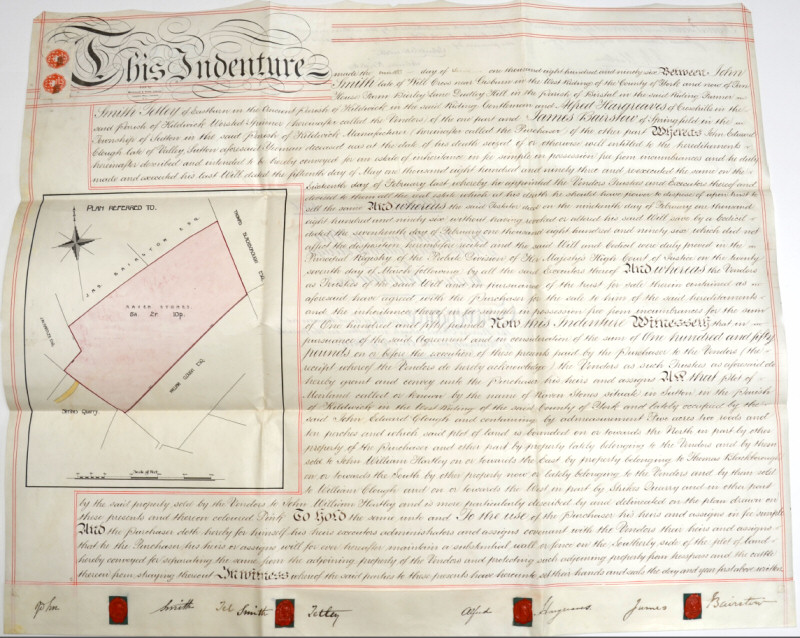 This Indenture
made the day of one thousand eight hundred and ninety six Between John
Smith late of near in the West Riding of the County of York and now of
House Farm Lane Dudley Hill in the parish of Birstal in the said Riding Farmer
Smith Tetley of in the parish of Kildwick in the said Riding Gentleman and Alfred Hargreaves of in the
said parish of Kildwick Worsted Spinner (hereinafter called the Vendors) of the one part and James Bairstow of Springfield in the
Township of Sutton in the said parish of Kildwick Manufacturer (hereinafter called the Purchaser) of the other part Whereas John Edward
Clough late of Sutton aforesaid Yeoman deceased was at the date of his death seized of or otherwise well entitled to the hereditaments
hereinafter described and intended to be hereby conveyed for an estate of inheritance in fee simple in possession free from incumbrances and he duly
made and executed his last Will dated the fifteenth day of May one thousand eight hundred and ninety three and re-executed the same on the
sixteenth day of February last whereby he appointed the Vendors Trustees and Executors thereof and
devised to them all the real estate which at his death he should have power to dispose of upon trust to
sell the same And whereas the said Testator died on the nineteenth day of February one thousand
eight hundred and ninety six without having revoked or altered his said Will save by a Codicil
dated the seventeenth day of February one thousand eight hundred and ninety six which did not
affect the disposition hereinbefore recited and the said Will and Codicil were duly proved in the
Principal Registry of the Probate Division of Her Majesty's High Court of Justice on the twenty
seventh day of March following by all the said Executors thereof And whereas the Vendors
as Trustees of the said Will and in pursuance of the trust for sale therein contained as
aforesaid have agreed with the Purchaser for the sale to him of the said hereditaments
and the inheritance thereof in fee simple in possession free from incumbrances for the sum
of One hundred and fifty pounds Now this Indenture Witnesseth that in
pursuance of the said Agreement and in consideration of the sum of One hundred and fifty
pounds on or before the execution of these presents paid by the Purchaser to the Vendors (the
receipt whereof the Vendors do hereby acknowledge) the Vendors as such Trustees as aforesaid do
hereby grant and convey unto the Purchaser his heirs and assigns All that plot of
Moorland called or known by the name of Stones situate in Sutton in the parish
of Kildwick in the West Riding of the said County of York and lately occupied by the
said John Edward Clough and containing by admeasurement Two acres two roods and
ten perches and which said plot of land is bounded on or towards the North in part by other
property of the Purchaser and other part by property lately belonging to the Vendors and by them
sold to John William Hartley on or towards the East by property belonging to Thomas
on or towards the South by other property now or lately belonging to the Vendors and by them sold
to William Clough and on or towards the West in part by Quarry and in other part
by the said property sold by the Vendors to John William Hartley and is more particularly described by and delineated on the plan drawn on
these presents and thereon coloured Pink To Hold the same unto and To the use of the Purchaser his heirs and assigns in fee simple
And the Purchaser doth hereby for himself his heirs executors administrators and assigns covenant with the Vendors their heirs and assigns
that he the Purchaser his heirs or assigns will for ever hereafter maintain a substantial wall or fence on the Southerly side of the plot of land
hereby conveyed for separating the same from the adjoining property of the Vendors and protecting such adjoining property from trespass and the cattle
therein from straying thereout In witness whereof the said parties to these presents have hereunto set their hands and seals the day and year first above written
PLAN REFERRED TO.
JAS BAIRSTOW ESQ.
STONES.
2A. 2r. 10p.
ESQ.
Quarry
Scale of Feet
John Smith
Smith Tetley
Alfred Hargreaves
James Bairstow